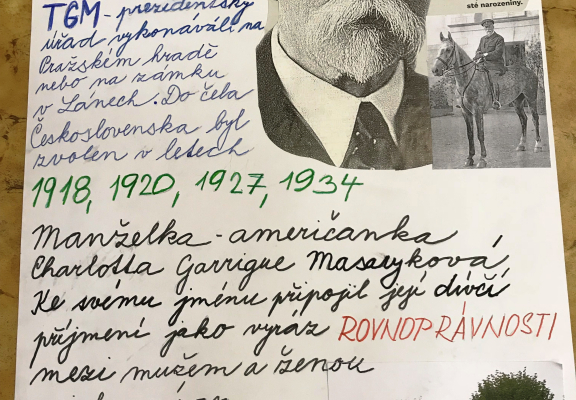 sté narozeniny.
TGM - prezidentský
úřad vykonával na
Pražském hradě
nebo na zámku
v Lánech. Do čela
Československa byl
zvolen v letech
1918, 1920, 1927, 1934
Manželka - američanka
Charlotta Garrigue Masaryková
Ke svému jménu připojil její dívčí
příjmení jako výraz ROVNOPRÁVNOSTI
mezi mužem a ženou